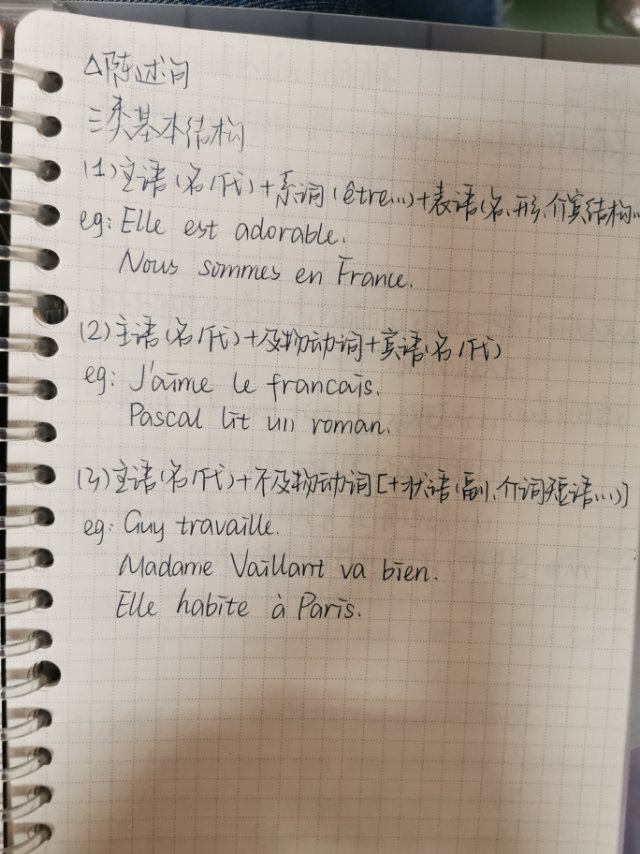 △陈述问
三类基本结构
(1)主语(名/代)+系词(être...)+表语(名、形、介宾结构...
eg: Elle est adorable.
Nous sommes en France.
(2)主语(名/代)+及物动词+宾语(名/代)
eg: J'aime le francais.
Pascal lit un roman.
(3)主语(名/代)+不及物动词[+状语(副、介词短语...)]
eg: Guy travaille.
Madame Vaillant va bien.
Elle habite à Paris.